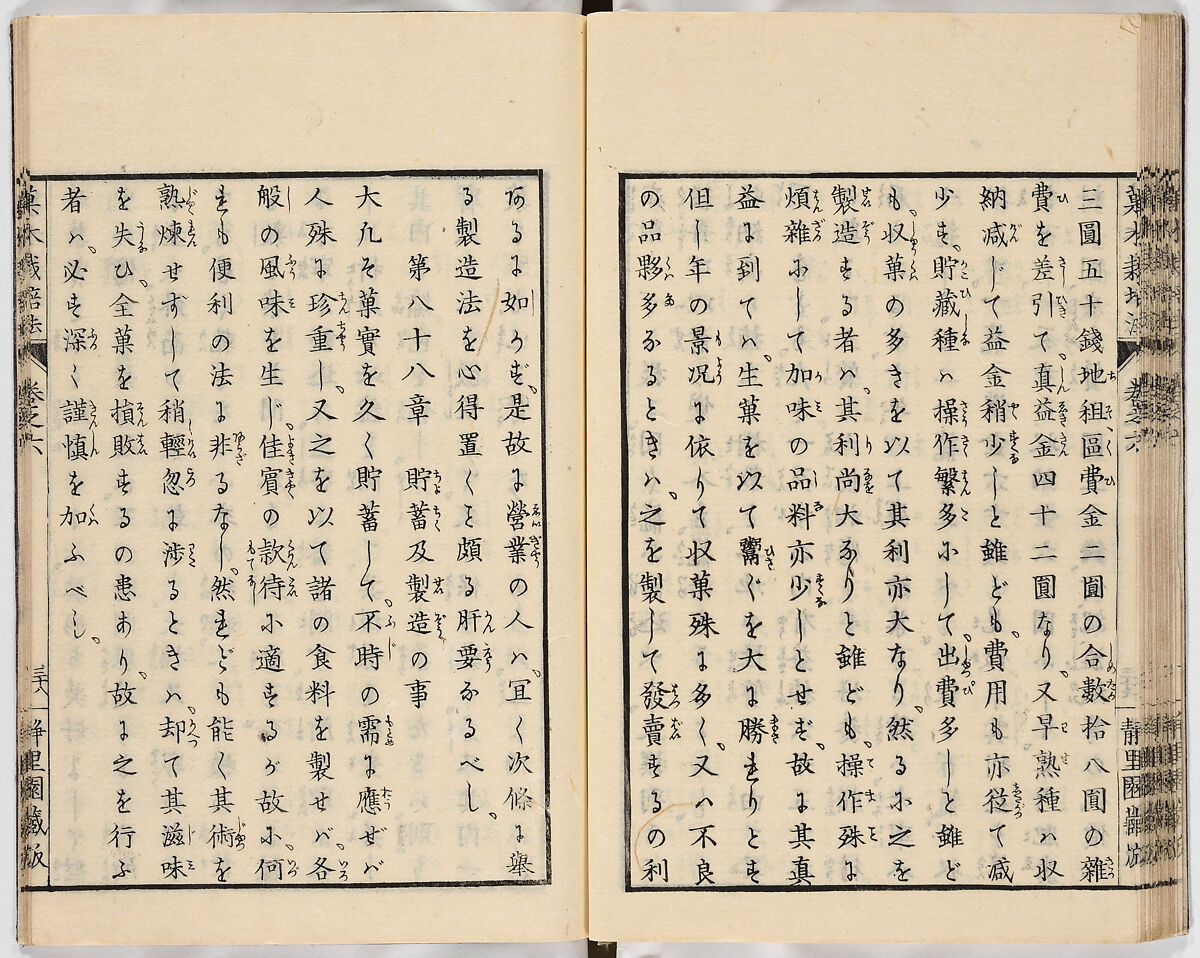 三圓五十錢地租區費金二圓の合數拾八圓の雜
費を差引て、真益金四十二圓なり、又早熟種ハ收
納減じて益金稍少しと雖ども、費用も亦從て減
少す、貯藏種ハ操作繁多にして、出費多しと雖ど
も、收菓の多きを以て其利亦大なり、然るに之を
製造する者ハ、其利尚大なりと雖ども、操作殊に
煩雜にして加味の品料亦少しとせず、故に其真
益に到てハ、生菓を以て鬻ぐを大に勝れりとす
但し年の景况に依りて収菓殊に多く、又ハ不良
の品夥多なるときハ、之を製して發賣するの利
あるに如かず、是故に營業の人ハ、冝く次條に舉
る製造法を心得置くを頗る肝要なるべし、
第八十八章 貯蓄及製造の事
大凡そ菓實を久く貯蓄して、不時の需に應ぜバ
人殊に珍重し、又之を以て諸の食料を製せバ、各
般の風味を生じ、佳賓の款待に適するが故に、何
れも便利の法に非るなし、然れども能く其術を
熟煉せずして稍輕忽に渉るときハ、却て其滋味
を失ひ、全菓を損敗するの患あり、故に之を行ふ
者ハ、必ず深く謹慎を加ふべし、
菓木栽培法 卷之六 三六 静里園藏版